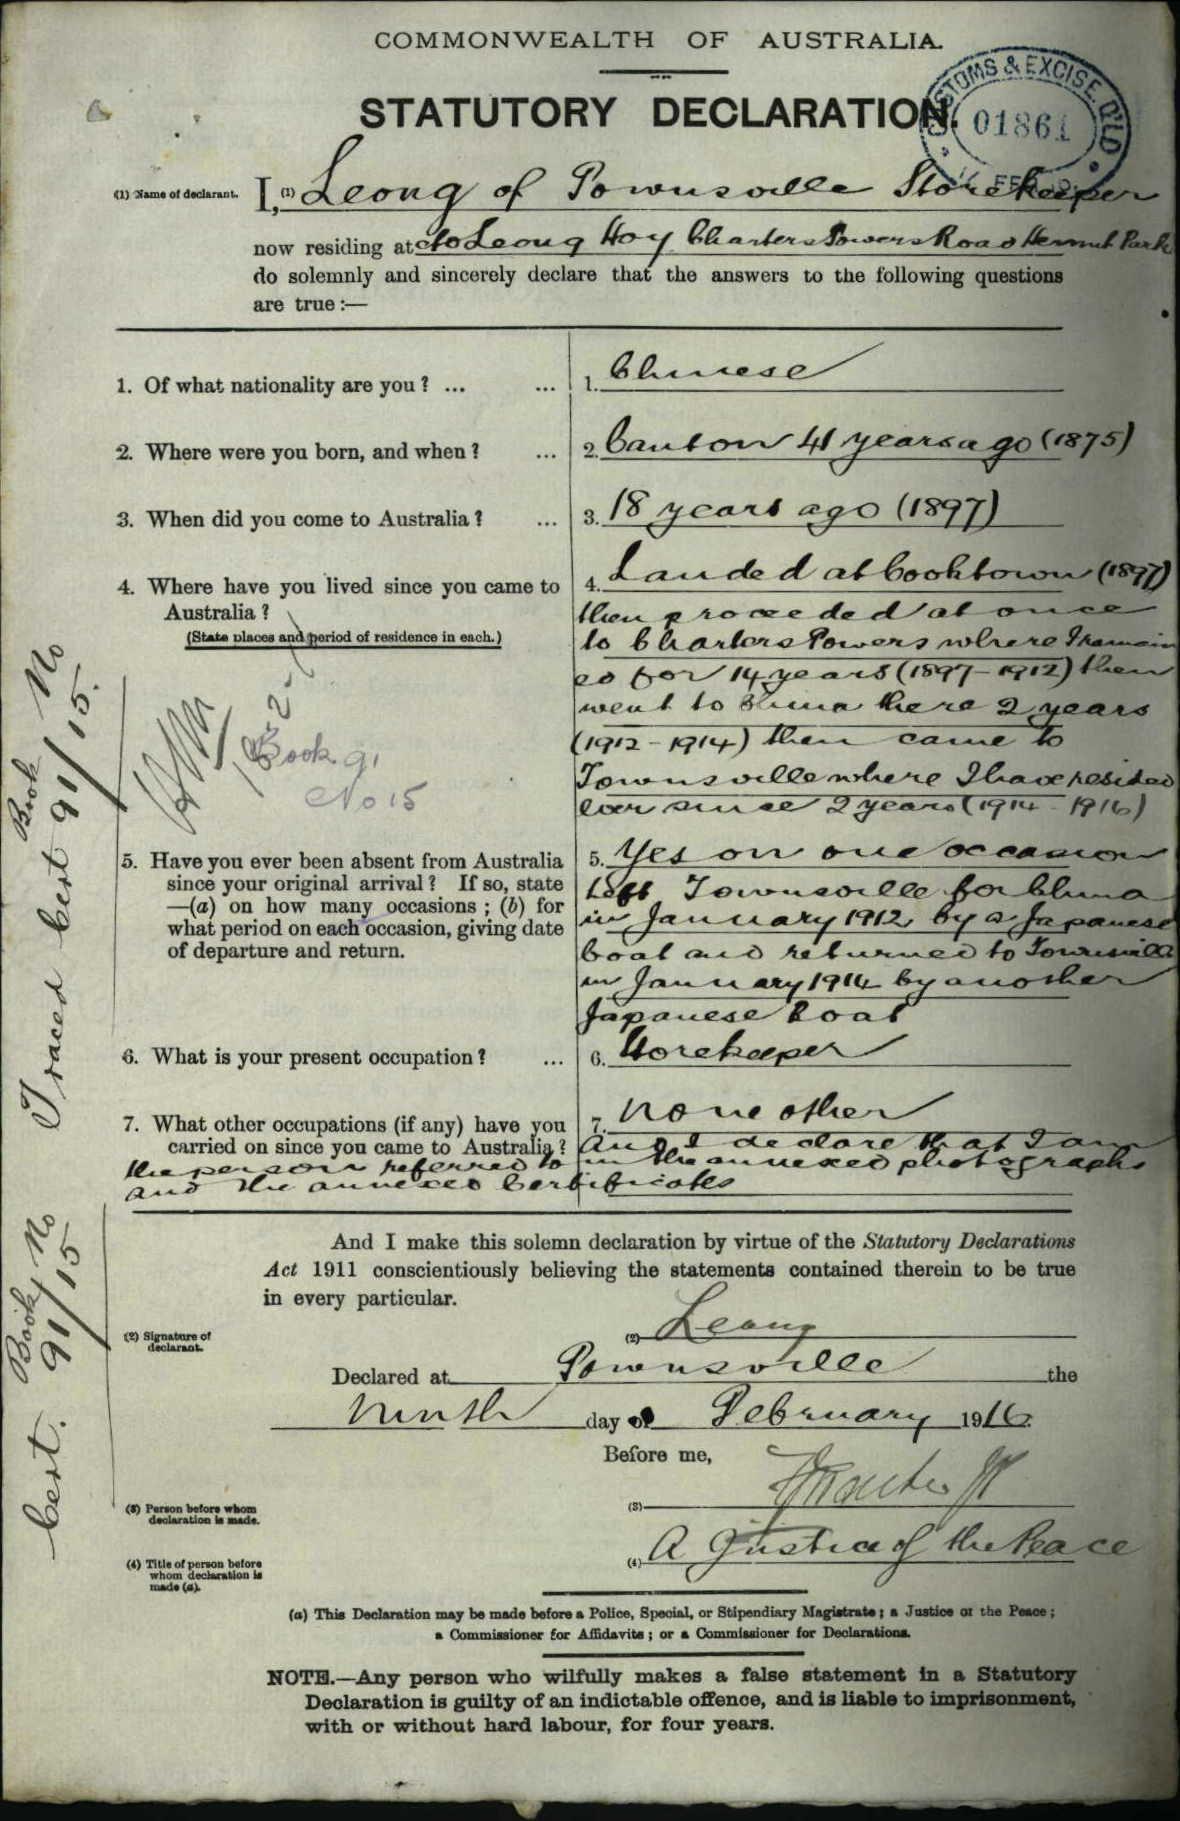 COMMONWEALTH OF AUSTRALIA.
STATUTORY DECLARATION.
CUSTOMS & EXCISE. Q'LD
01861
FEB
(1) Name of declarant. I, (1) Leong of Townsville Storekeeper
now residing at c/o Leong Hoy Charters Towers Road Hermit Park
do solemnly and sincerely declare that the answers to the following questions
are true :—
1. Of what nationality are you ? ... ... 1. Chinese
2. Where were you born, and when ? ... 2. Canton 41 years ago (1875)
3. When did you come to Australia ? ... 3. 18 years ago (1897)
4. Where have you lived since you came to
Australia ?
(State places and period of residence in each.)
4. Landed at Cooktown (1897)
then proceeded at once
to Charters Towers where I remain
ed for 14 years (1897-1912) then
went to China there 2 years
(1912-1914) then came to
Townsville where I have resided
ever since 2 years (1914-1916)
Book 91
No 15
5. Have you ever been absent from Australia
since your original arrival ? If so, state
—(a) on how many occasions ; (b) for
what period on each occasion, giving date
of departure and return.
5. Yes on one occasion
Left Townsville for China
in January 1912 by a Japanese
boat and returned to Townsville
in January 1914 by another
Japanese Boat
6. What is your present occupation ? ... 6. Storekeeper
7. What other occupations (if any) have you
carried on since you came to Australia ?
7. None other
And I declare that I am
the person referred to in the annexed photographs
and the annexed Certificates
And I make this solemn declaration by virtue of the Statutory Declarations
Act 1911 conscientiously believing the statements contained therein to be true
in every particular.
(2) Signature of
declarant.
(2) Leong
Declared at Townsville the
Ninth day of February 1916.
Before me,
(3) Person before whom
declaration is made.
(3) JP
(4) Title of person before
whom declaration is
made (a).
(4) A Justice of the Peace
(a) This Declaration may be made before a Police, Special, or Stipendiary Magistrate ; a Justice of the Peace ;
a Commissioner for Affidavits ; or a Commissioner for Declarations.
NOTE.—Any person who wilfully makes a false statement in a Statutory
Declaration is guilty of an indictable offence, and is liable to imprisonment,
with or without hard labour, for four years.
Traced Cert Book No 91/15.
Cert. Book No 91/15